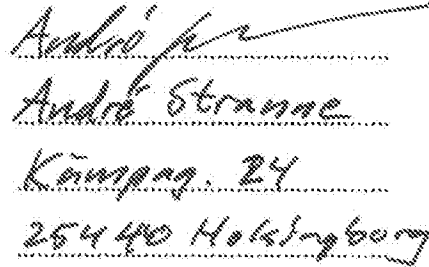 André
André Stramme
Kämpag. 24
254 40 Helsingborg